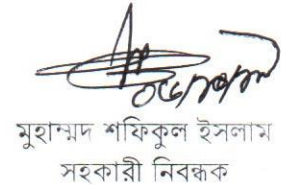 মুহাম্মদ শফিকুল ইসলাম
সহকারী নিবন্ধক